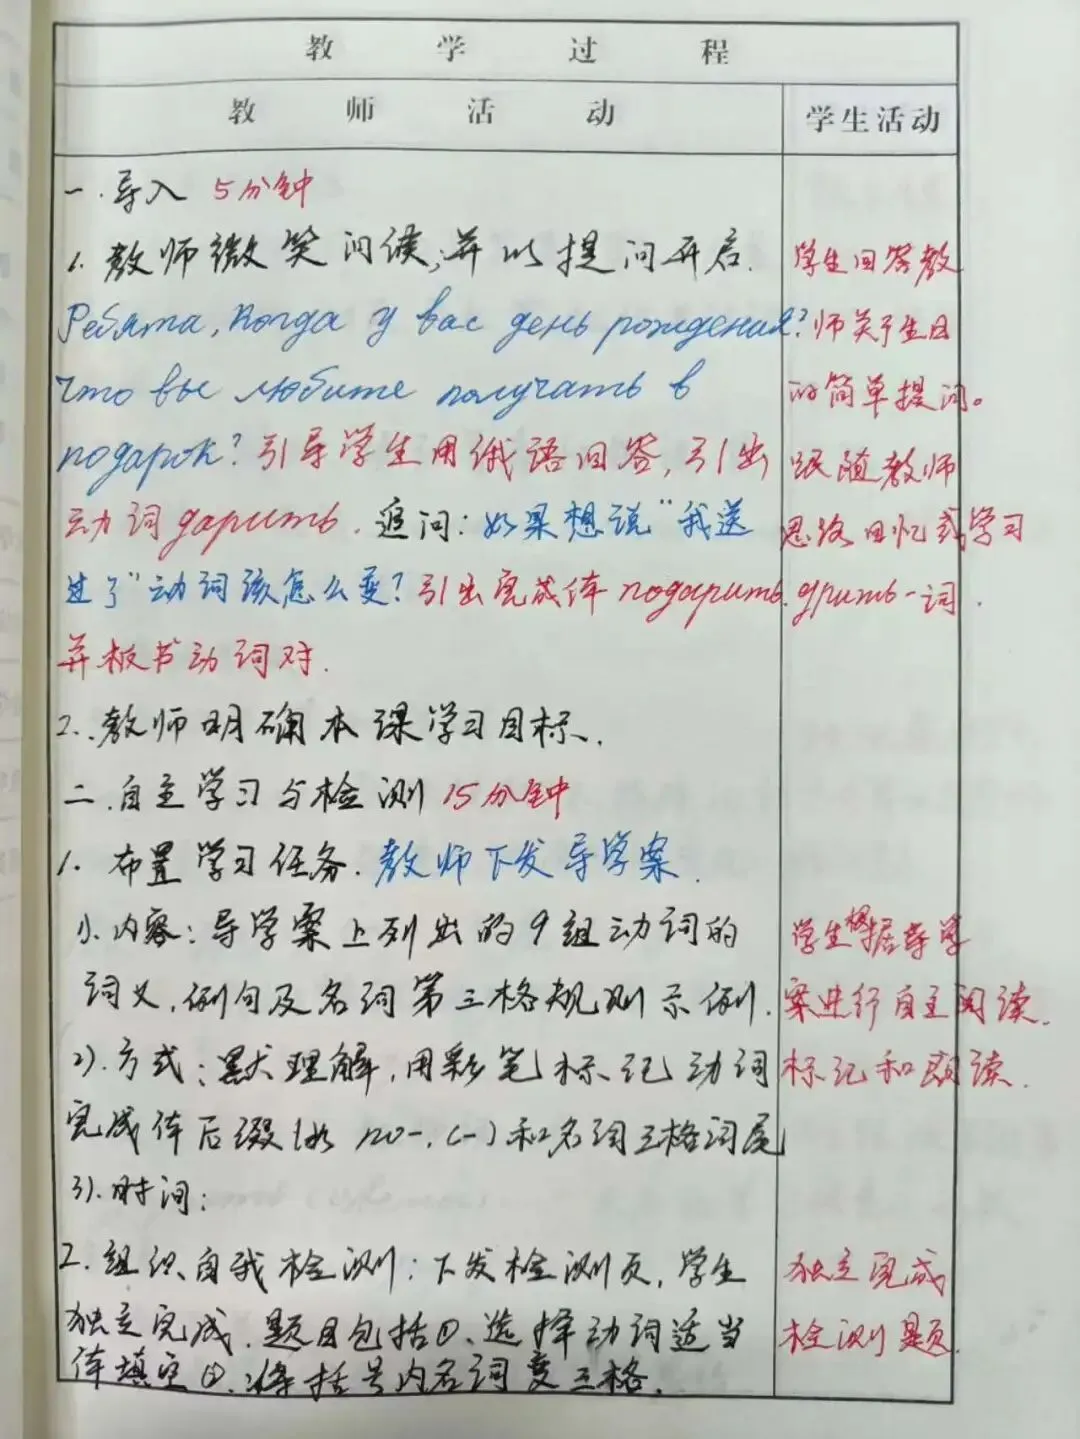 教学过程
教师活动
学生活动
一.导入 5分钟
1.教师微笑问候,并以提问开启.
Ребята, когда у вас день рождения?
Что вы любите получать в
подарок?引导学生用俄语回答,引出
动词дарить.追问:如果想说"我送
过了"动词该怎么变?引出完成体подарить.
并板书动词对.
2.教师明确本课学习目标.
二.自主学习与检测 15分钟
1.布置学习任务.教师下发导学案.
1).内容:导学案上列出的9组动词的
词义,例句及名词第三格规则示例.
2).方式:默犬理解,用彩笔标记动词
完成体后缀(如 по-,с-)和名词三格词尾
3).时间:
2.组织自我检测:下发检测页,学生
独立完成.题目包括①.选择动词适当
体填空②.将括号内名词变三格.
学生回答教
师关于生日
的简单提问。
跟随教师
思路回忆或学习
дрить一词.
学生根据导学
案进行自主阅读.
标记和朗读.
独立完成
检测题.